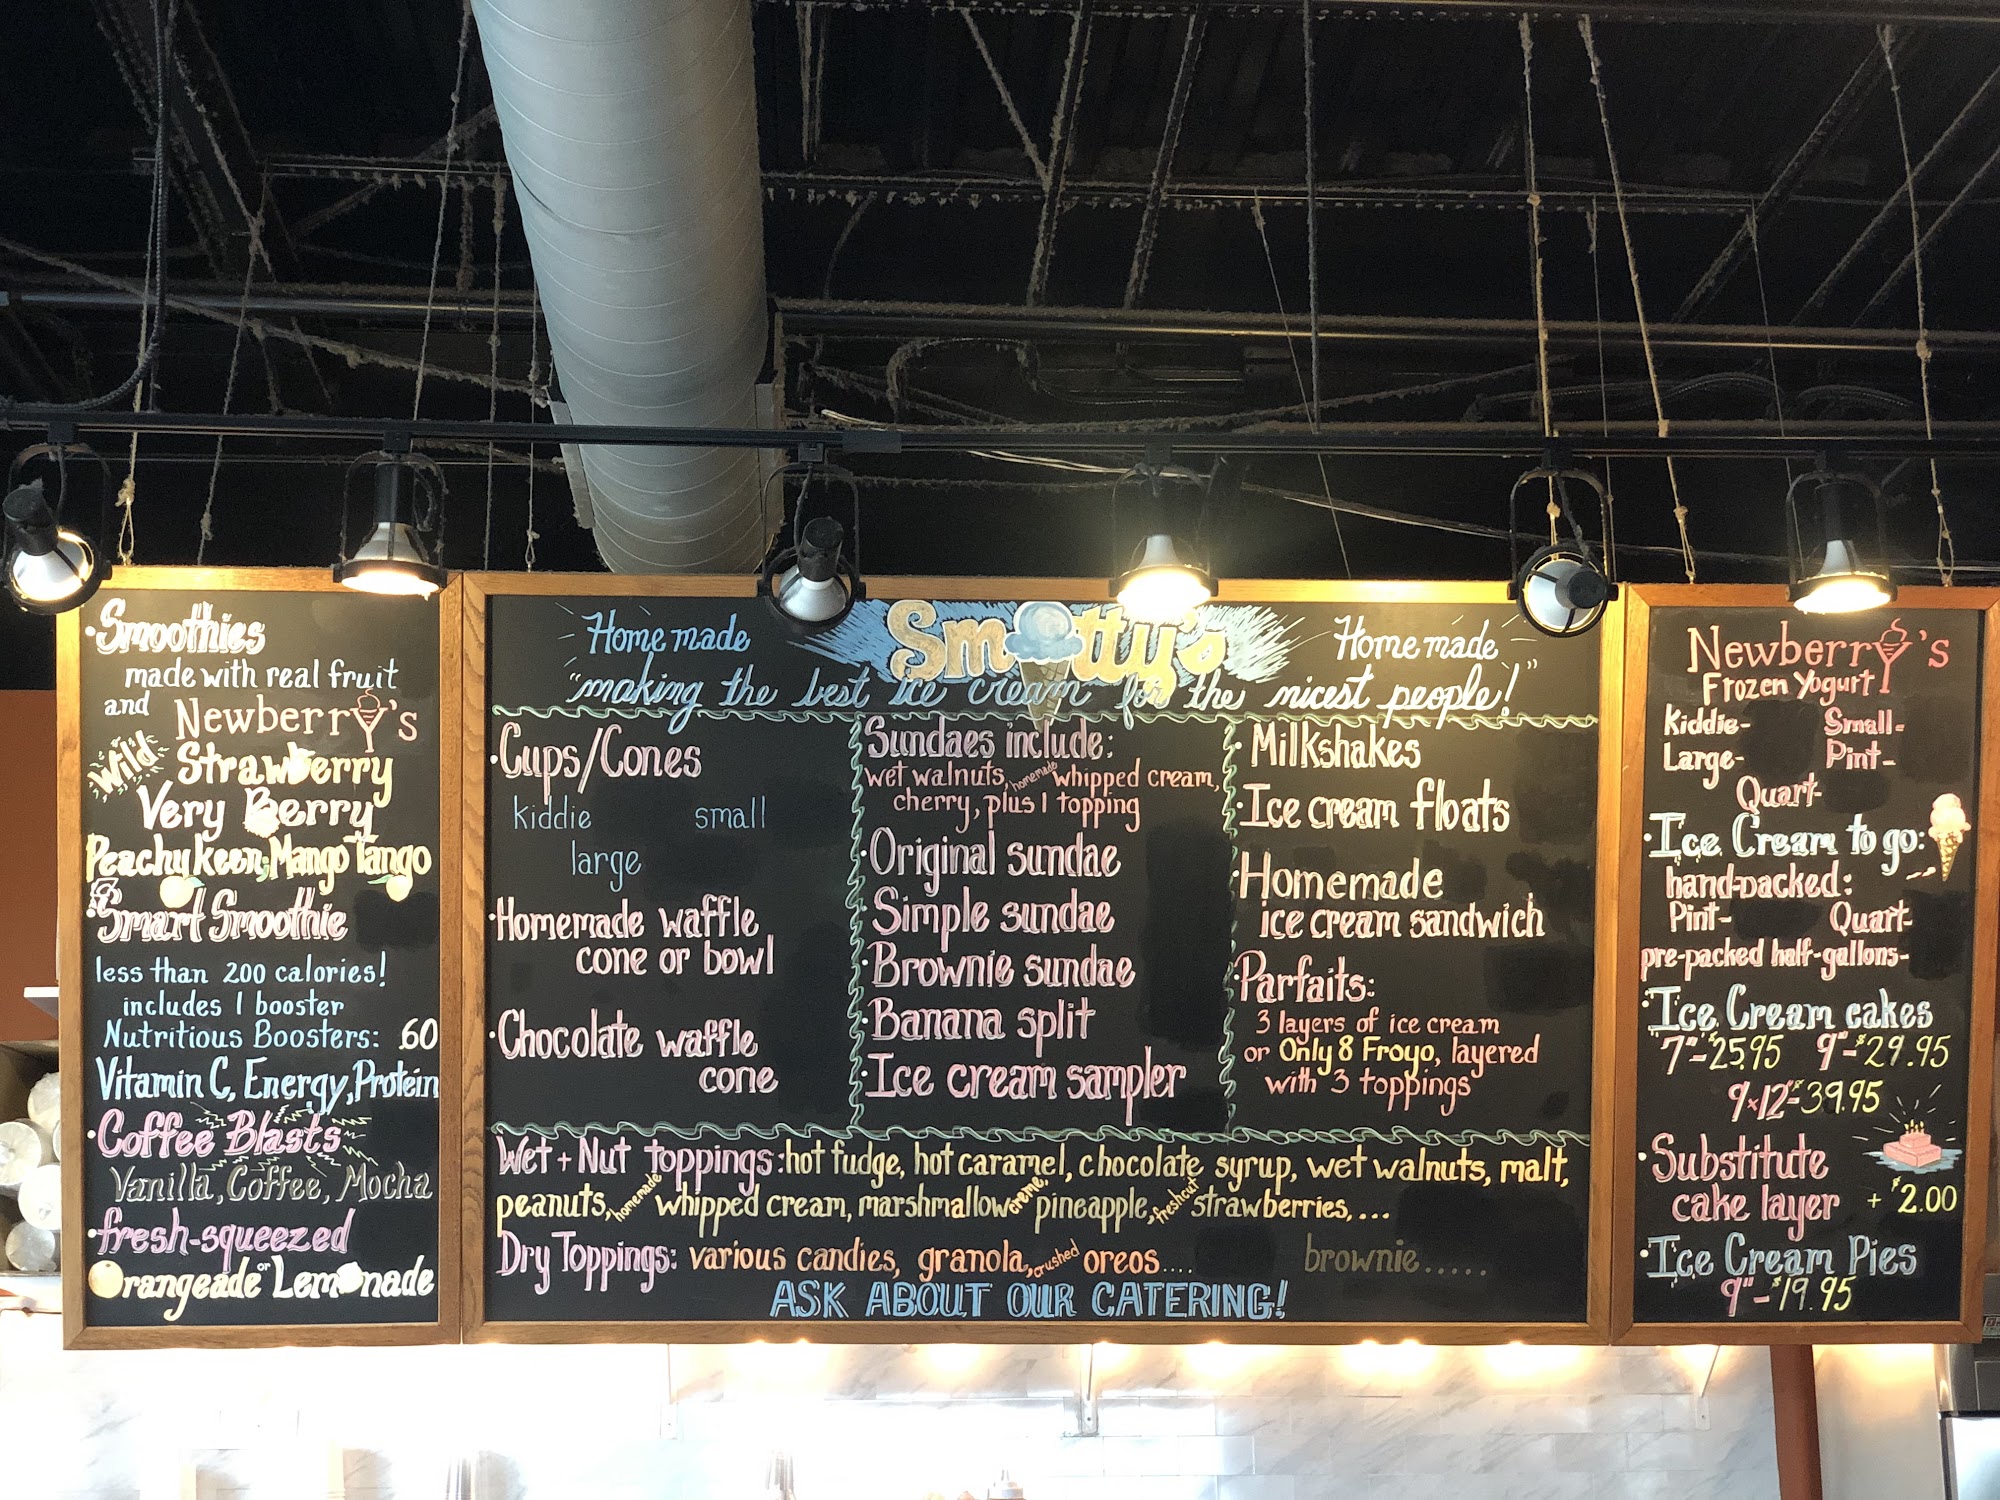 • Smoothies
made with real fruit
and Newberry's
Wild Strawberry
Very Berry
Peachy Keen, Mango Tango
• Smart Smoothie
less than 200 calories!
includes 1 booster
Nutritious Boosters: .60
Vitamin C, Energy, Protein
• Coffee Blasts
Vanilla, Coffee, Mocha
• fresh-squeezed
Orangeade or Lemonade
Homemade Smotty's Homemade
"making the best ice cream for the nicest people!"
• Cups/Cones
kiddie small
large
• Homemade waffle
cone or bowl
• Chocolate waffle
cone
Sundaes include:
wet walnuts, homemade whipped cream,
cherry, plus 1 topping
• Original sundae
• Simple sundae
• Brownie sundae
• Banana split
• Ice cream sampler
• Milkshakes
• Ice cream floats
• Homemade
ice cream sandwich
• Parfaits:
3 layers of ice cream
or Only 8 Froyo, layered
with 3 toppings
Wet + Nut toppings: hot fudge, hot caramel, chocolate syrup, wet walnuts, malt,
peanuts, homemade whipped cream, marshmallow creme, pineapple, fresh cut strawberries, ...
Dry Toppings: various candies, granola, crushed oreos.... brownie.....
ASK ABOUT OUR CATERING!
Newberry's
Frozen Yogurt
Kiddie- Small-
Large- Pint-
Quart-
• Ice Cream to go:
hand-packed:
Pint- Quart-
pre-packed half-gallons-
• Ice Cream cakes
7"-$25.95 9"-$29.95
9x12-$39.95
• Substitute
cake layer + $2.00
• Ice Cream Pies
9"-$19.95